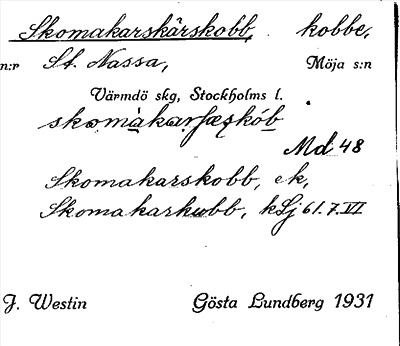 Skomakarskärskobb, kobbe,
n:r St. Nassa, Möja s:n
Värmdö skg, Stockholms l.
skomàkarſæʂkób
Md 48
Skomakarskobb, ek,
Skomakarkubb, kLj 61.7.VI
J. Westin Gösta Lundberg 1931